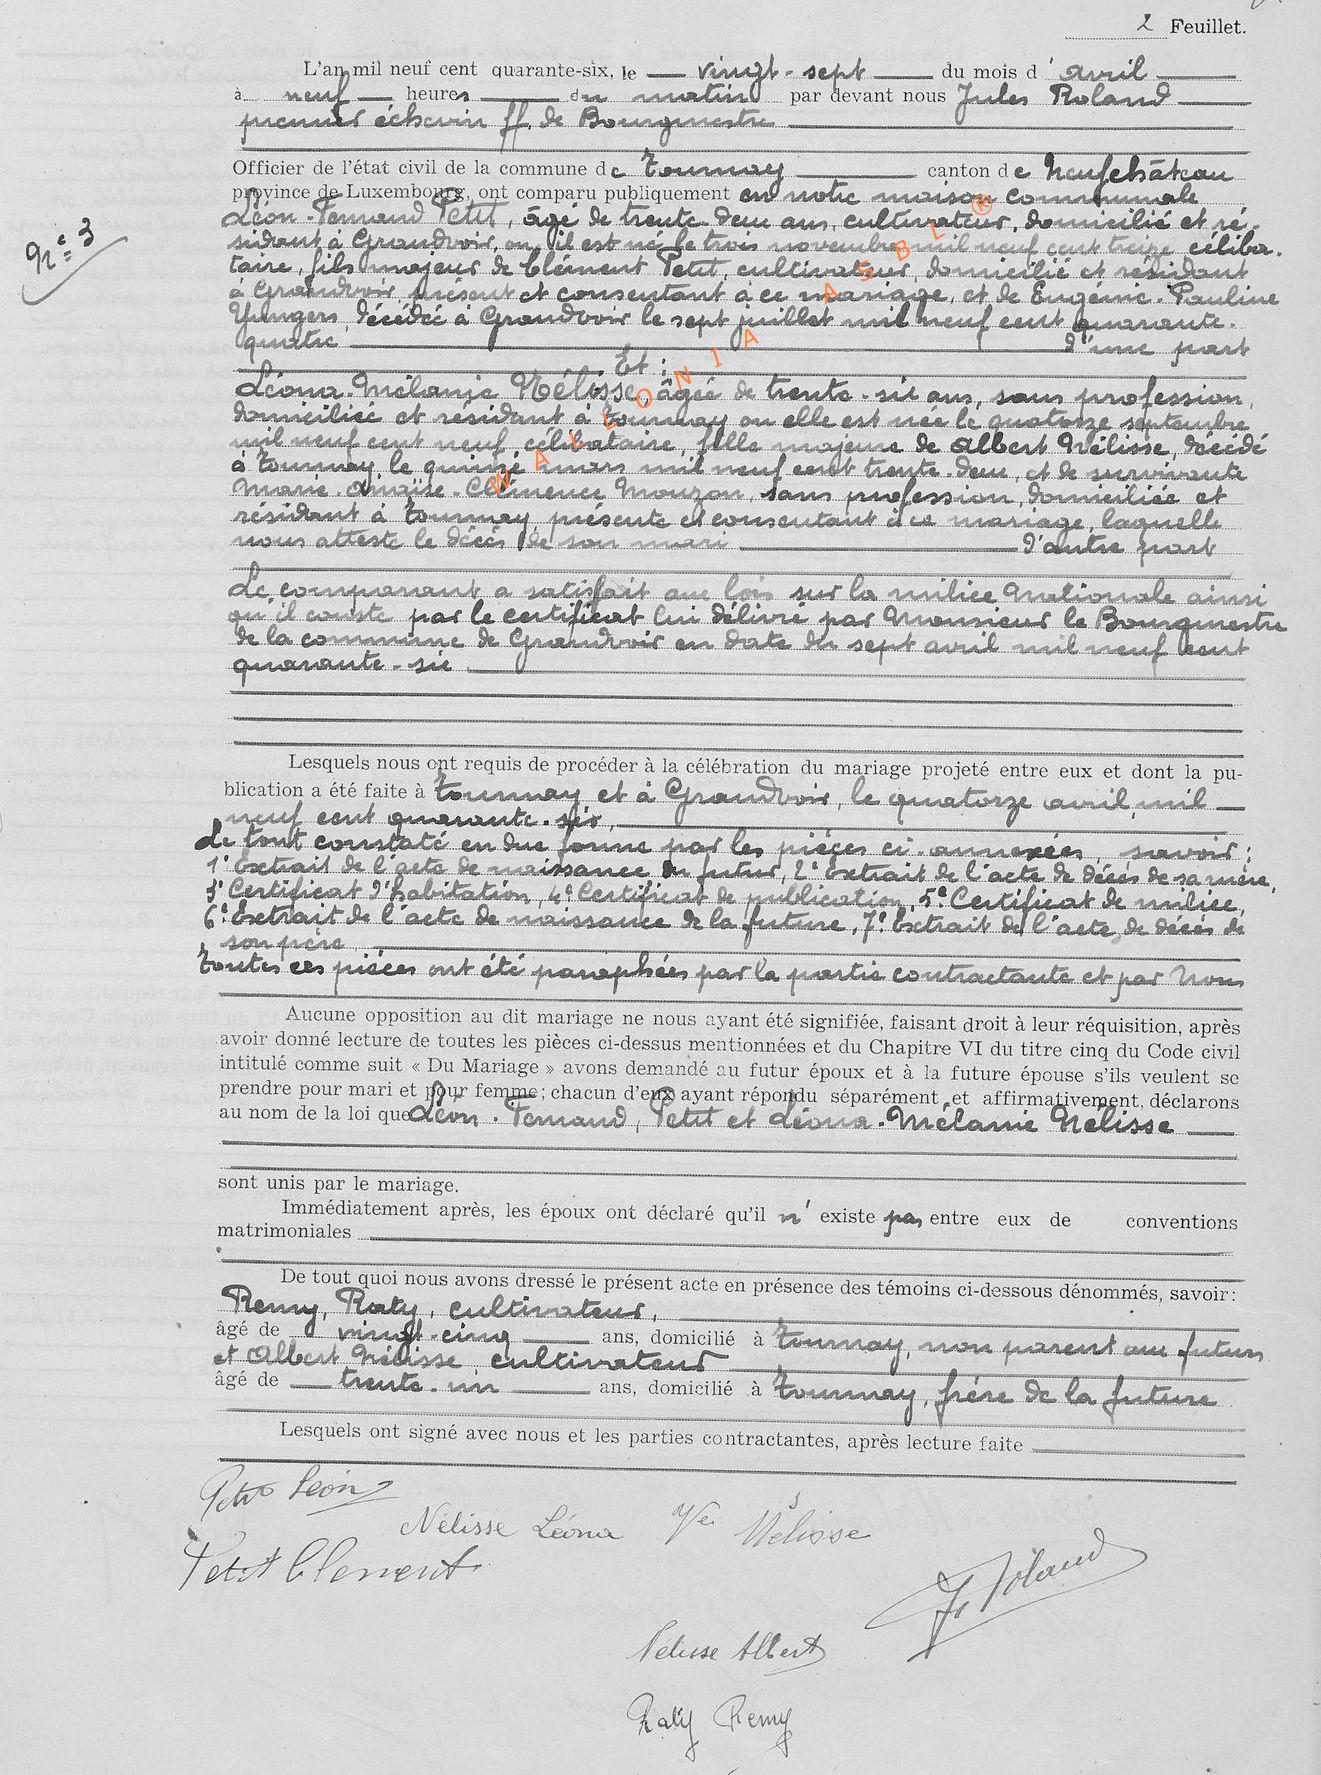 2 Feuillet.
L'an mil neuf cent quarante-six, le vingt-sept du mois d'avril
à neuf heures du matin par devant nous Jules Roland
premier échevin ff. de Bourgmestre
Officier de l'état civil de la commune de Tournay canton de Neufchâteau
province de Luxembourg, ont comparu publiquement en notre maison communale
N° 3
Léon-Fernand Petit, âgé de trente-deux ans, cultivateur, domicilié et ré-
sidant à Grandvoir, où il est né le trois novembre mil neuf cent treize, céliba-
taire, fils majeur de Clément Petit, cultivateur, domicilié et résidant
à Grandvoir, présent et consentant à ce mariage, et de Eugénie-Pauline
décédée à Grandvoir le sept juillet mil neuf cent quarante-
quatre d'une part
Et :
Léona-Mélanie Nélisse, âgée de trente-six ans, sans profession,
domiciliée et résidant à Tournay où elle est née le quatorze septembre
mil neuf cent neuf, célibataire, fille majeure de Albert Nélisse, décédé
à Tournay le quinze mars mil neuf cent trente-deux, et de survivante
Marie-Clémence Mouzon, sans profession, domiciliée et
résidant à Tournay, présente et consentant à ce mariage, laquelle
nous atteste le décès de son mari d'autre part
WALLONIA ASBL ®
Le comparant a satisfait aux lois sur la milice Nationale ainsi
qu'il conste par le certificat lui délivré par Monsieur le Bourgmestre
de la commune de Grandvoir en date du sept avril mil neuf cent
quarante-six
Lesquels nous ont requis de procéder à la célébration du mariage projeté entre eux et dont la pu-
blication a été faite à Tournay et à Grandvoir, le quatorze avril mil
neuf cent quarante-six,
Le tout constaté en due forme par les pièces ci-annexées, savoir :
1° Extrait de l'acte de naissance du futur, 2° Extrait de l'acte de décès de sa mère,
3° Certificat d'habitation, 4° Certificat de publication, 5° Certificat de milice,
6° Extrait de l'acte de naissance de la future, 7° Extrait de l'acte de décès de
son père
Toutes ces pièces ont été paraphées par la partie contractante et par Nous
Aucune opposition au dit mariage ne nous ayant été signifiée, faisant droit à leur réquisition, après
avoir donné lecture de toutes les pièces ci-dessus mentionnées et du Chapitre VI du titre cinq du Code civil
intitulé comme suit « Du Mariage » avons demandé au futur époux et à la future épouse s'ils veulent se
prendre pour mari et pour femme ; chacun d'eux ayant répondu séparément et affirmativement, déclarons
au nom de la loi que Léon-Fernand, Petit et Léona-Mélanie Nélisse
sont unis par le mariage.
Immédiatement après, les époux ont déclaré qu'il n'existe pas entre eux de conventions
matrimoniales
De tout quoi nous avons dressé le présent acte en présence des témoins ci-dessous dénommés, savoir :
Remy, Raty, cultivateur,
âgé de vingt-cinq ans, domicilié à Tournay, non parent aux futurs
et Albert Nélisse cultivateur
âgé de trente-un ans, domicilié à Tournay, frère de la future
Lesquels ont signé avec nous et les parties contractantes, après lecture faite
Petit Léon
Nélisse Léona Vve Nélisse
Petit Clement
J. Roland
Nelisse Albert
Raty Remy